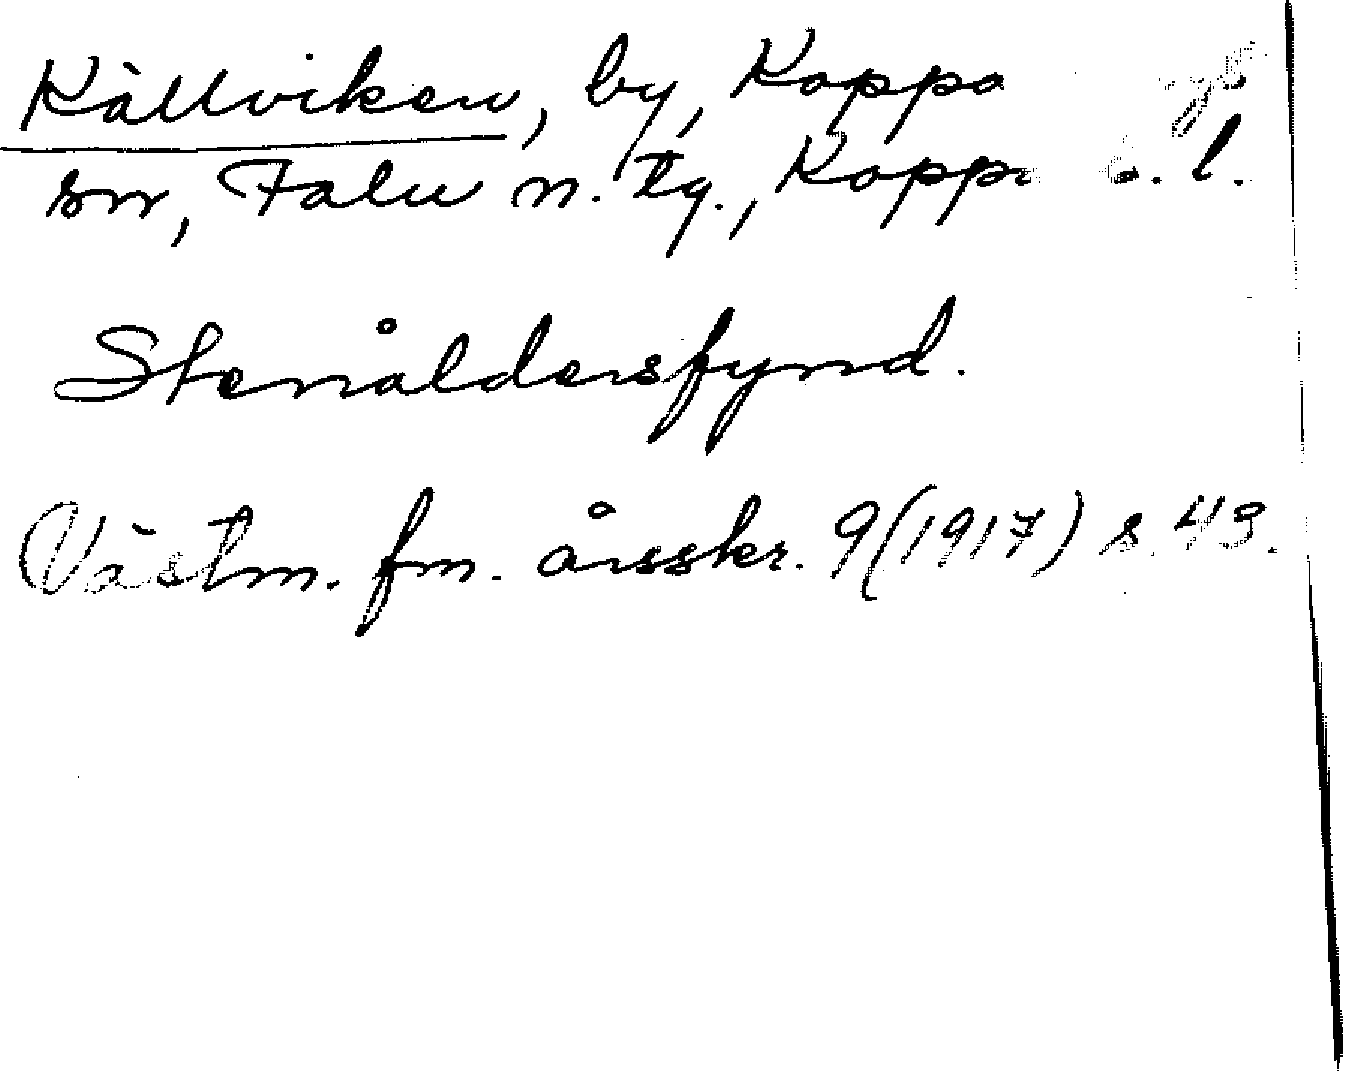 Källviken, by, Koppa
sn, Falu n. tg., Kopp. b. l.
Stenåldersfynd.
Västm. fm. årsskr. 9 (1917) s. 43.